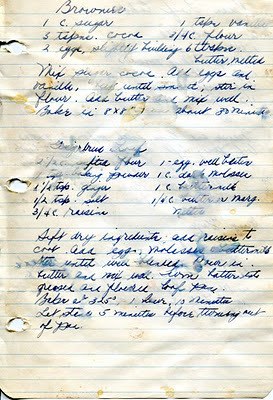 Brownies
1 C. sugar 1 tspn vanilla
3 tspns. cocoa 3/4 C. flour
2 eggs, slightly 6 tbspn.
butter, melted
Mix sugar cocoa. Add eggs and
vanilla, until smooth, stir in
flour. Add butter mix well.
Bake in 8"x8" about 30 minutes
flour 1-egg. well beaten
powder 1 C. dark molasses
1/2 tsp. ginger 1 C.
1/2 tsp. salt 1/4 C. butter or marg.
3/4 C. raisins melted
Sift dry ingredients; add raisins to
coat. Add egg, molasses,
until well blended. Pour in
butter and mix well. batter into
greased and floured loaf pan.
Bake at 325° 1 hour,
Let stand 5 minutes before turning out
of pan.